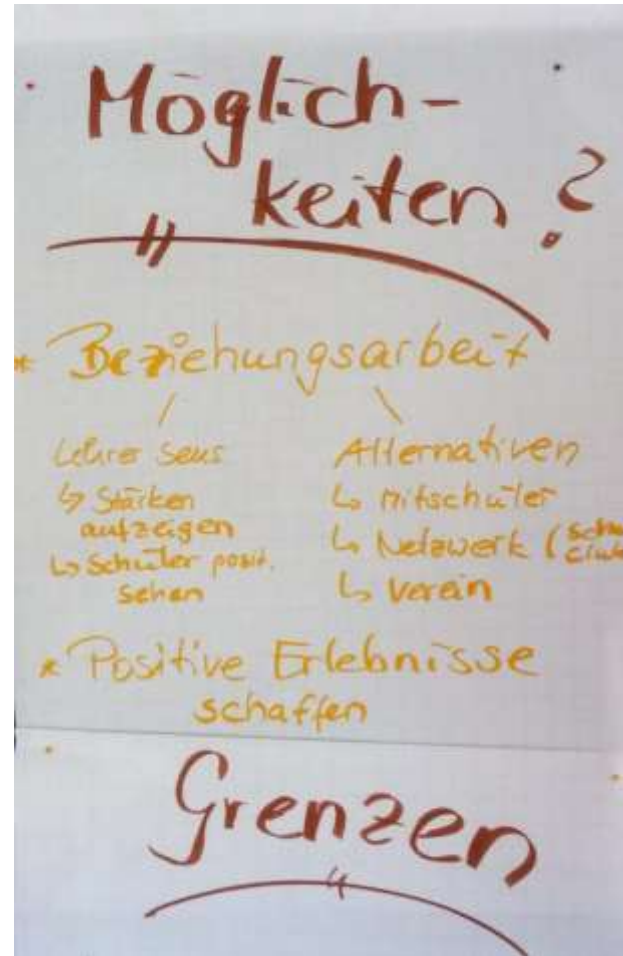 Möglich-
keiten?
* Beziehungsarbeit
Lehrer
↳ Stärken
aufzeigen
↳ Schüler posit.
sehen
Alternativen
↳ Mitschüler
↳ Netzwerk (
↳ Verein
* Positive Erlebnisse
schaffen
Grenzen